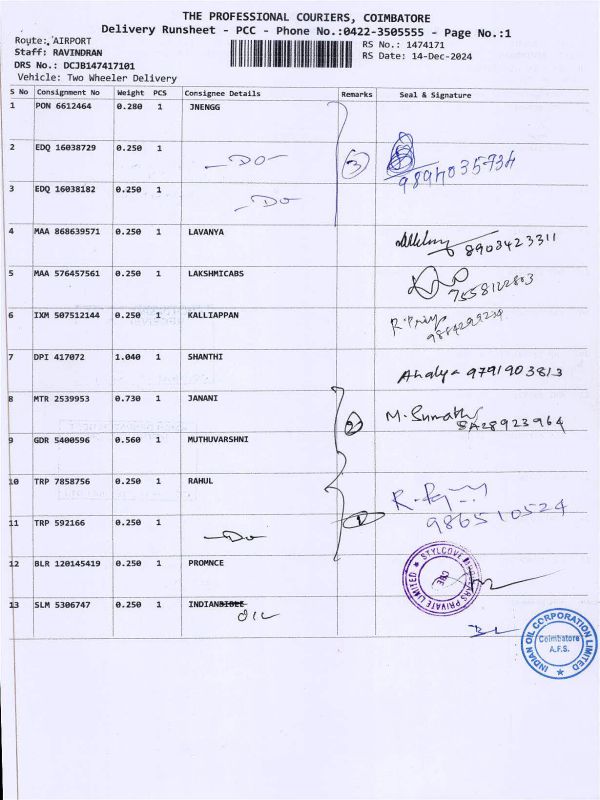 THE PROFESSIONAL COURIERS, COIMBATORE
Delivery Runsheet - PCC - Phone No.:0422-3505555 - Page No.:1
Route: AIRPORT
Staff: RAVINDRAN
DRS No.: DCJB147417101
Vehicle: Two Wheeler Delivery
RS No.: 1474171
RS Date: 14-Dec-2024
S No Consignment No Weight PCS Consignee Details Remarks Seal & Signature
1 PON 6612464 0.280 1 JNENGG
2 EDQ 16038729 0.250 1 -DO- 3
9894035934
3 EDQ 16038182 0.250 1 -DO
4 MAA 868639571 0.250 1 LAVANYA 8903423311
5 MAA 576457561 0.250 1 LAKSHMICABS
6 IXM 507512144 0.250 1 KALLIAPPAN R. Priya
7 DPI 417072 1.040 1 SHANTHI 9791903813
8 MTR 2539953 0.730 1 JANANI 2 M. Sumathi
9 GDR 5400596 0.560 1 MUTHUVARSHNI
10 TRP 7858756 0.250 1 RAHUL
986510524
11 TRP 592166 0.250 1 -DO 1
12 BLR 120145419 0.250 1 PROMNCE
13 SLM 5306747 0.250 1 INDIANBIBLE
OIL
INDIAN OIL CORPORATION LIMITED
Coimbatore
A.F.S.